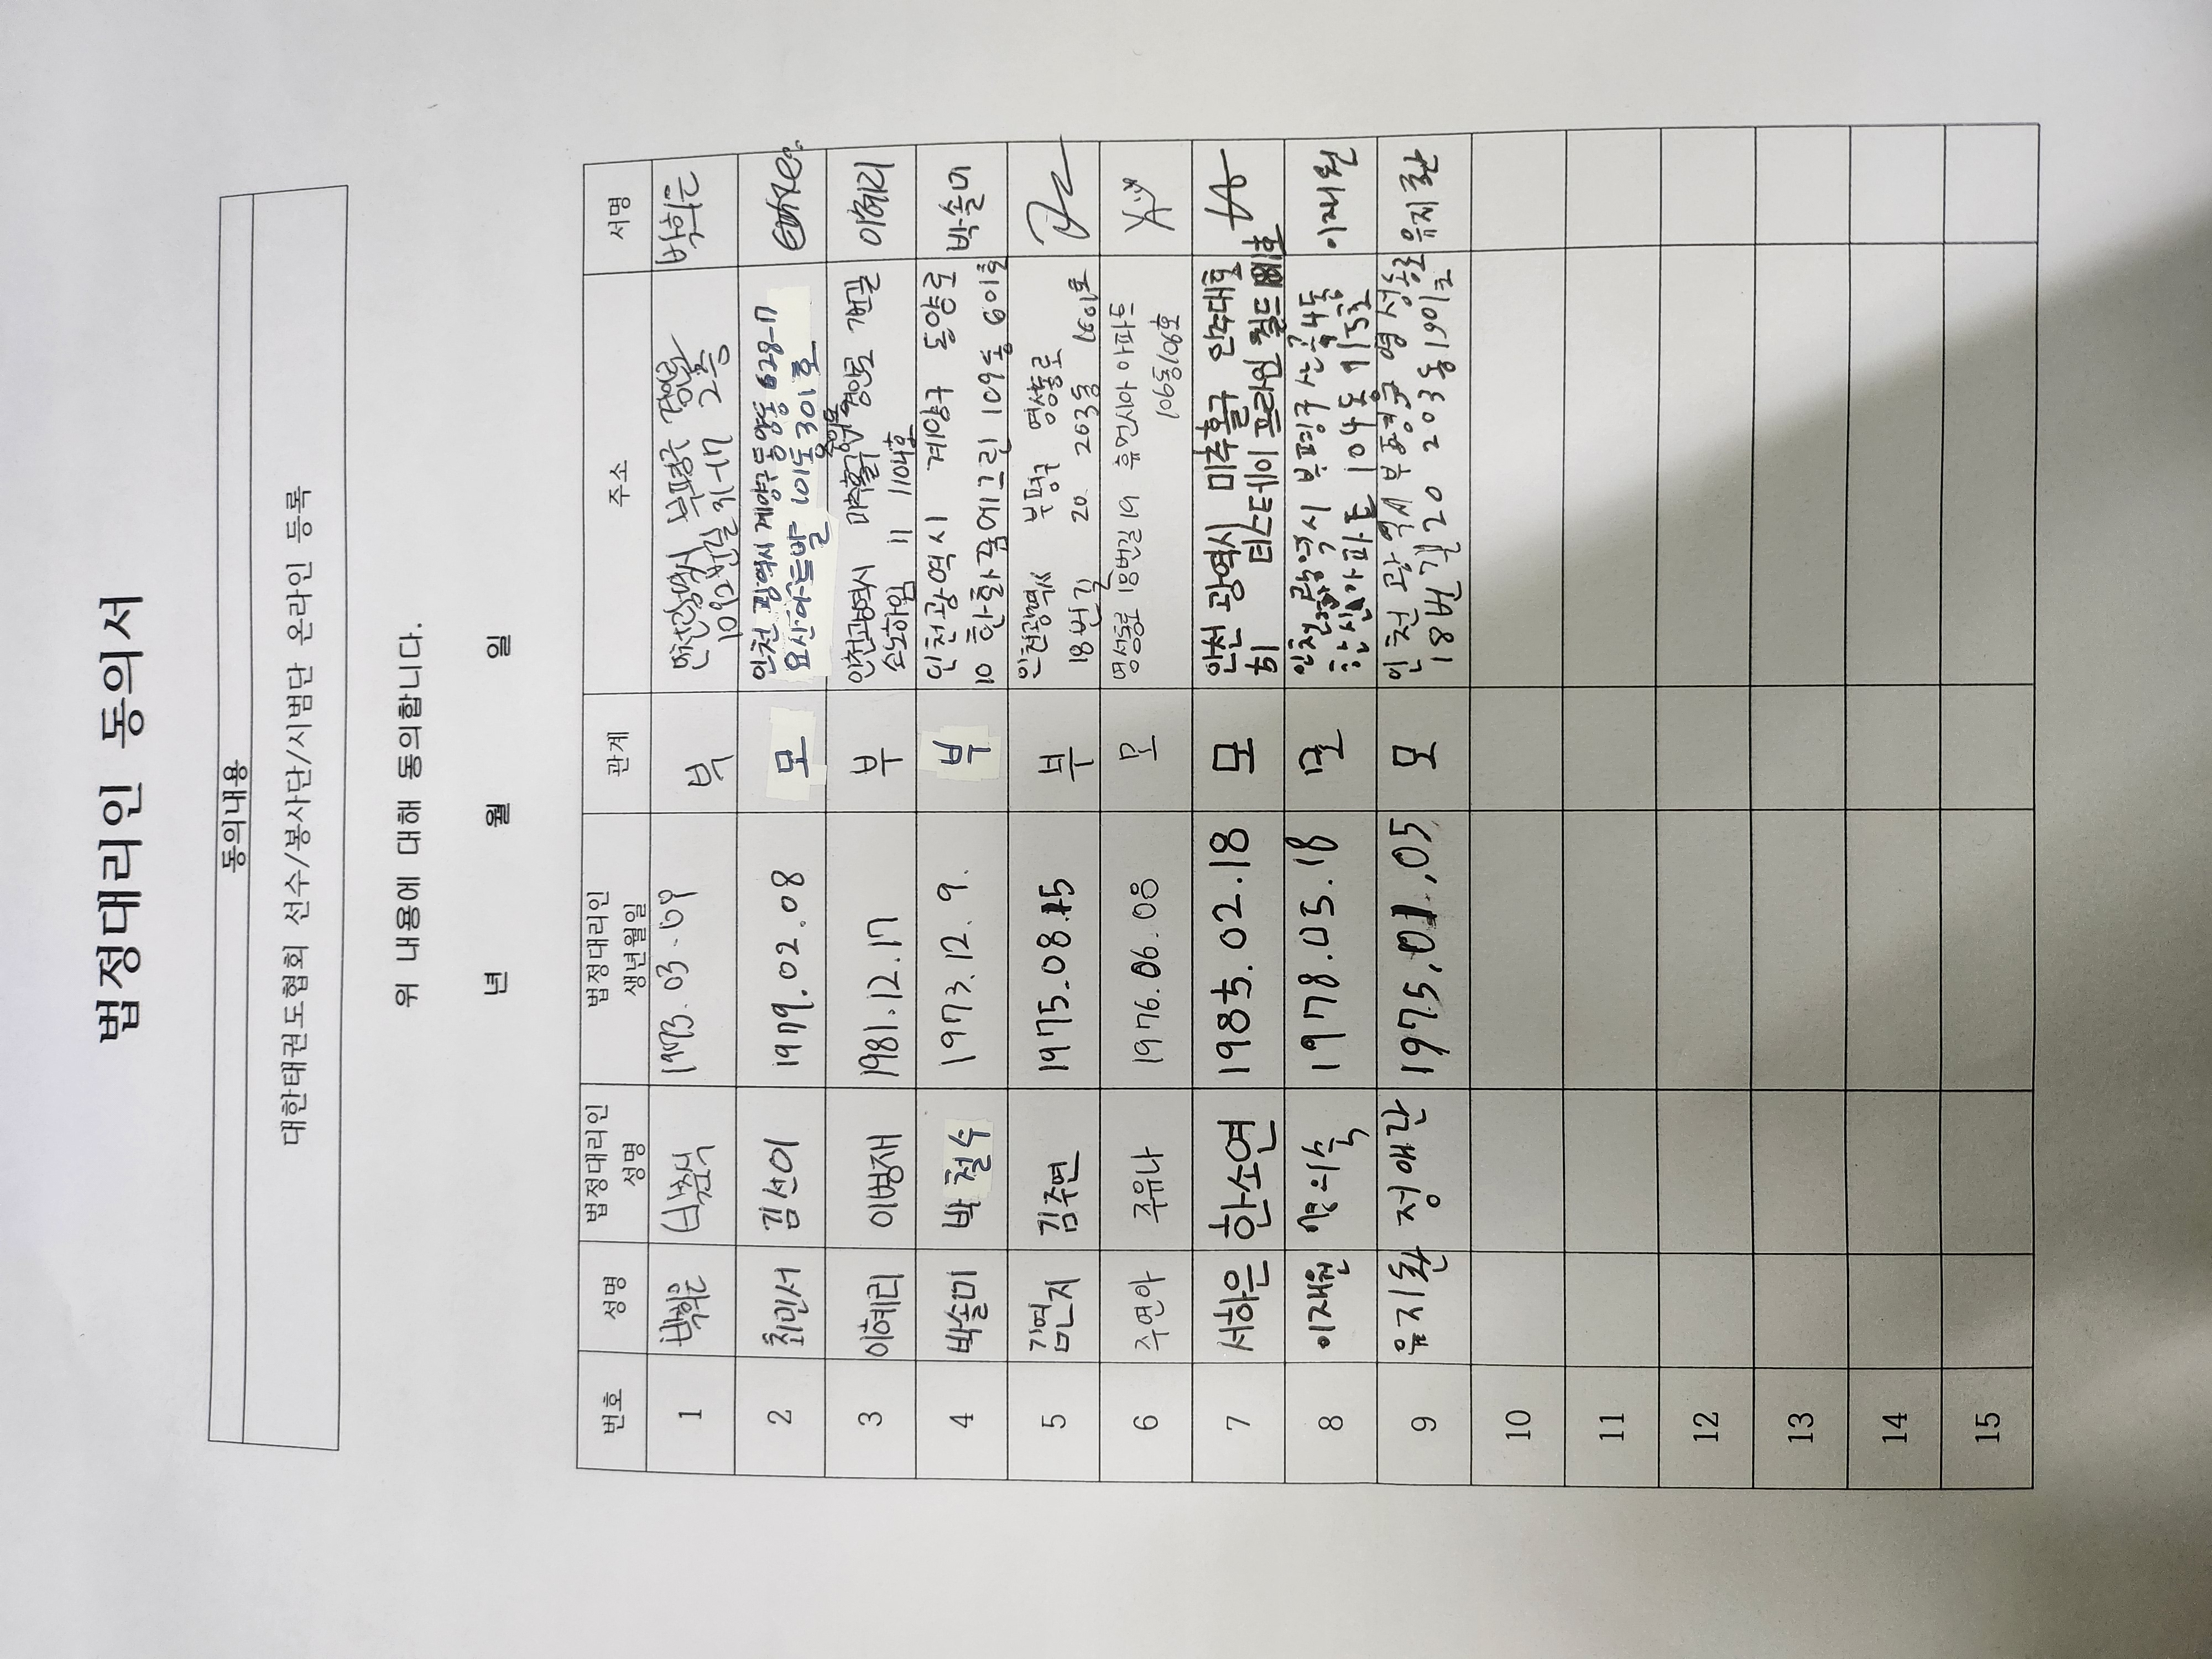 법정대리인 동의서
동의내용
대한태권도협회 선수/봉사단/시범단 온라인 등록
위 내용에 대해 동의합니다.
년 월 일
번호 성명 법정대리인 성명 법정대리인 생년월일 관계 주소 서명
1 박휘은 1973.03.09 부 인천광역시 부평구 2층 박휘은
2 최민서 김선이 1979.02.08 모 인천 광역시 계양구 동양동 628-17
요산아트빌 101동 301호
3 이혜리 이병재 1981.12.17 부 인천광역시 미추홀구 경인로 이혜리
소노하임 11 1104호
4 박솔미 박철수 1973.12.9. 부 인천광역시 계양구 동양로 박솔미
10 한화꿈에그린 109동 601호
5 김연지 김주연 1975.08.15 부 인천광역시 부평구 영성동로
18번길 20 203동 1501호
6 주연아 주유나 1976.06.08 모 영성동로 18번길 19 휴먼시아 아파트
106동 106호
7 서하은 한소연 1985.02.18 모 인천 광역시 미추홀구 인주대로
티스테이
8 이재원 1978.05.18 모 인천광역시 부평구 이재원
한신아파트 104동
9 유지환 정애란 1975.01.05 모 인천 광역시 부평구 영성동로 유지환
18번길 20 203동 1901호
10
11
12
13
14
15